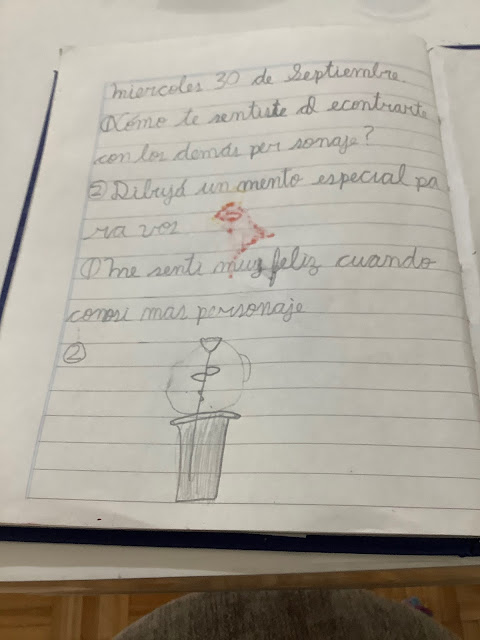 miercoles 30 de Septiembre.
①Cómo te sentiste al econtrarte
con los demás per sonaje?
② Dibujá un mento especial pa
ra vos
① me senti muy feliz cuando
conosi mas personaje
②